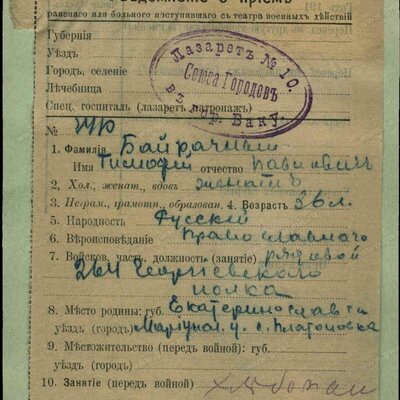 раненаго или больного поступившаго съ театра военныхъ дѣйствій
Губернія
Уѣздъ
Городъ, селеніе
Лѣчебница
Спец. госпиталь (лазаретъ патронажъ)
Лазаретъ № 10.
Союза Городовъ
въ гор. Баку.
№
1. Фамилія Байрачный
Имя Тимофей отчество Павловичъ
2. Хол., женат., вдовъ женатъ
3. Неграм., грамотн., образован. 4. Возрастъ 36 л.
5. Народность Русскій
6. Вѣроисповѣданіе Православнаго
7. Войсков. часть, должность (занятіе) рядовой
264 Георгіевскаго
полка
8. Мѣсто родины: губ. Екатеринослав
уѣздъ (городъ) Маріупол. у. с. Платоновка
9. Мѣстожительство (передъ войной): губ.
уѣздъ (городъ)
10. Занятіе (передъ войной)